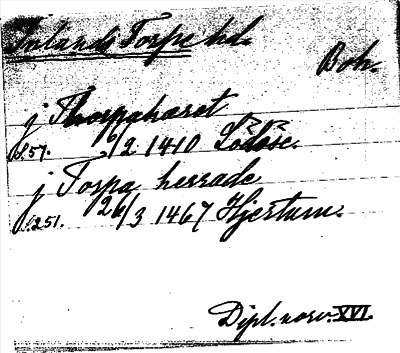 Inlands Torpe hd.
Boh.
j Thorpahæret
s.57. 9/2 1410 Lödöse.
j Torpa herrade
s.251. 26/3 1467 Hjertum.
Dipl. norv. XVI.